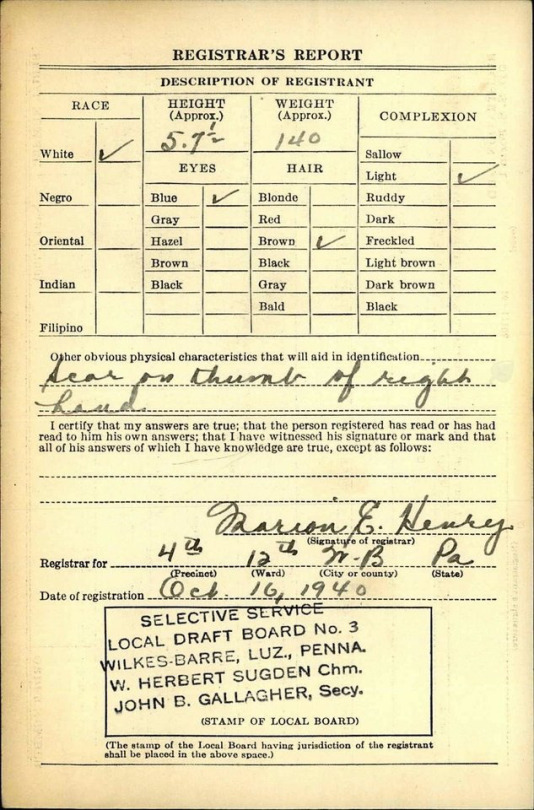 REGISTRAR'S REPORT
DESCRIPTION OF REGISTRANT
RACE
White ✓
Negro
Oriental
Indian
Filipino
HEIGHT
(Approx.)
5.7½
WEIGHT
(Approx.)
140
EYES
Blue ✓
Gray
Hazel
Brown
Black
HAIR
Blonde
Red
Brown ✓
Black
Gray
Bald
COMPLEXION
Sallow
Light ✓
Ruddy
Dark
Freckled
Light brown
Dark brown
Black
Other obvious physical characteristics that will aid in identification
Scar on thumb of right
hand.
I certify that my answers are true; that the person registered has read or has had
read to him his own answers; that I have witnessed his signature or mark and that
all of his answers of which I have knowledge are true, except as follows:
Marion E. Henry
(Signature of registrar)
Registrar for 4th 12th W-B Pa
(Precinct) (Ward) (City or county) (State)
Date of registration Oct. 16, 1940
SELECTIVE SERVICE
LOCAL DRAFT BOARD No. 3
WILKES-BARRE, LUZ., PENNA.
W. HERBERT SUGDEN Chm.
JOHN B. GALLAGHER, Secy.
(STAMP OF LOCAL BOARD)
(The stamp of the Local Board having jurisdiction of the registrant
shall be placed in the above space.)